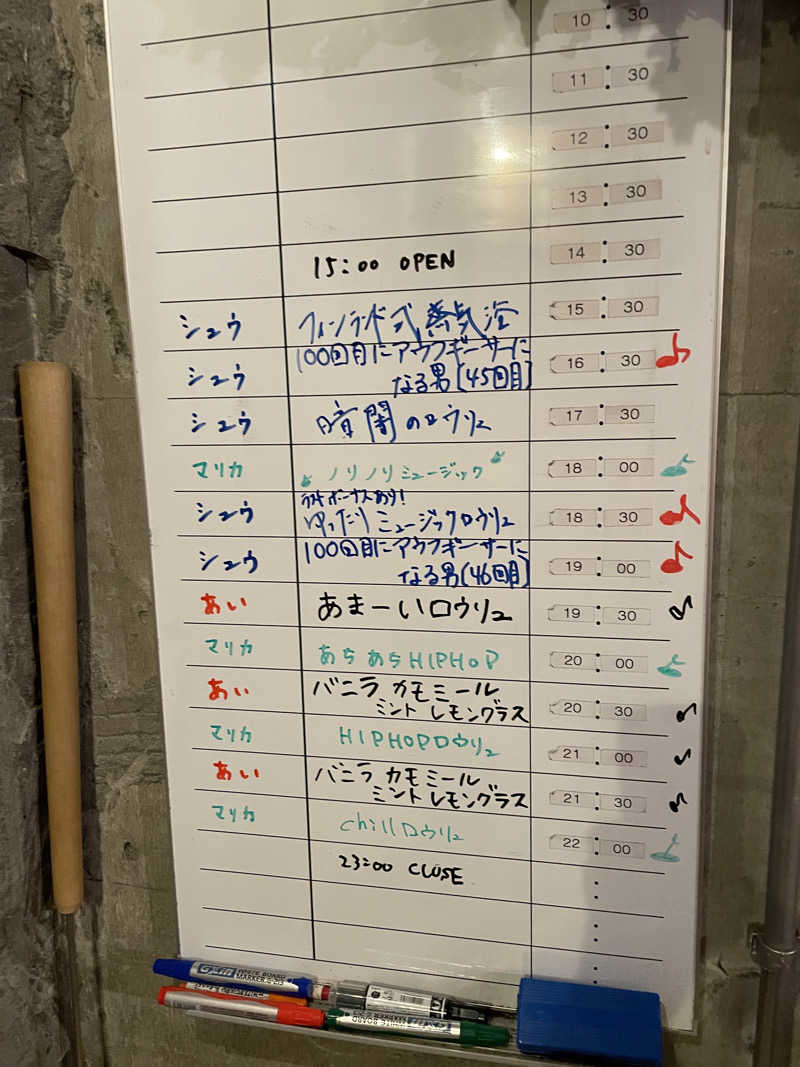 10:30
11:30
12:30
13:30
15:00 OPEN 14:30
シュウ フィンランド式蒸気浴 15:30
シュウ 100回目にアウフギーサーに
なる男[45回目] 16:30
シュウ 暗闇のロウリュ 17:30
マリカ ノリノリミュージック 18:00
ボーナスあり!
シュウ ゆったりミュージックロウリュ 18:30
シュウ 100回目にアウフギーサーに
なる男[46回目] 19:00
あい あまーいロウリュ 19:30
マリカ あちあちHIPHOP 20:00
あい バニラ カモミール
ミント レモングラス 20:30
マリカ HIPHOPロウリュ 21:00
あい バニラ カモミール
ミント レモングラス 21:30
マリカ chillロウリュ 22:00
23:00 CLOSE
WHITE BOARD
MARKER
WHITE BOARD